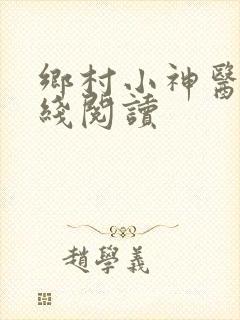 鄉村小神醫
綫閱讀
趙學義